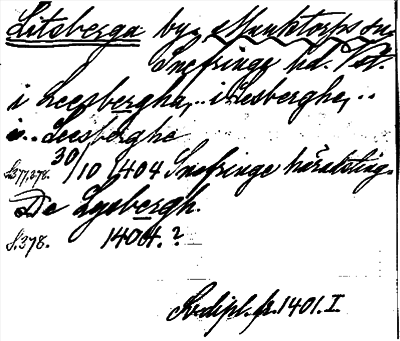 Litsberga by, Munktorps sn.
Snefringe hd. Vstl.
i Leesbergha, .. i Lesberghe, ..
i .. Leesberghe
s. 377, 378. 30/10 1404 Snefringe häradsting.
De Lysbergh.
s. 378. 1404.?
Sv. dipl. fr. 1401. I